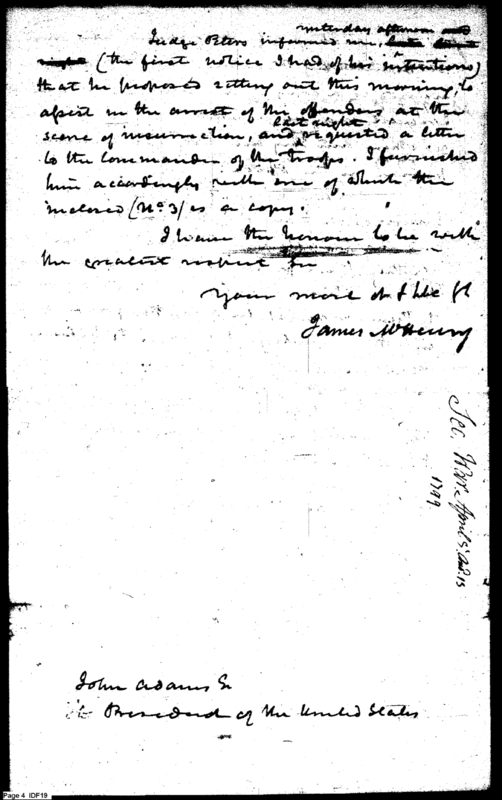 yesterday afternoon and
Judge Peters informed me,
(the first notice I had of his intentions)
that he proposed setting out this morning, to
assist in the arrest of the offenders at the
last night
scene of insurrection, and requested a letter
to the Commander of the Troops. I furnished
him accordingly with one of which the
inclosed (No. 3) is a copy.
I have the honour to be with
the greatest respect Sir
Your most ob & hble St
James McHenry
Sec. War. April 5.
1799
John Adams E
President of the United States
Page 4 IDF19